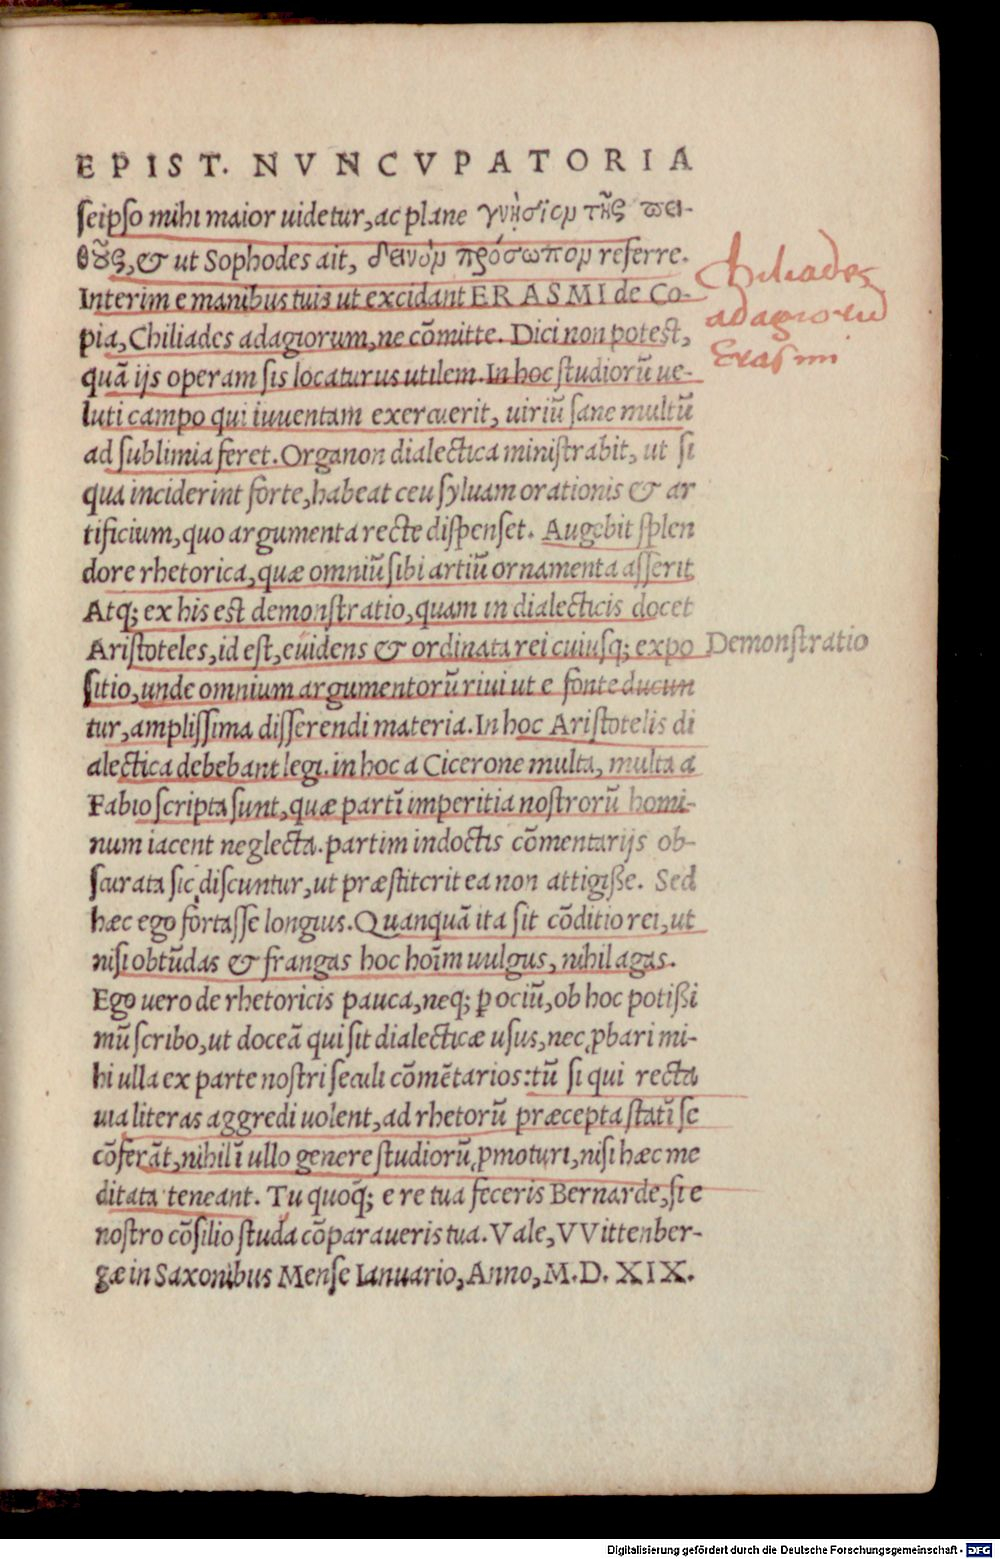 EPIST. NVNCVPATORIA
ſeipſo mihi maior uidetur, ac plane γνήσιον τῆς πει-
θοῦς, & ut Sophocles ait, δεινὸν πρόσωπον referre.
Interim e manibus tuis ut excidant ERASMI de Co-
pia, Chiliades adagiorum, ne cōmitte. Dici non poteſt,
Chiliades
adagiorū
Eraſmi
quā ijs operam ſis locaturus utilem. In hoc ſtudiorū ue-
luti campo qui iuuentam exercuerit, uiriū ſane multū
ad ſublimia feret. Organon dialectica miniſtrabit, ut ſi
qua inciderint forte, habeat ceu ſyluam orationis & ar
tificium, quo argumenta recte diſpenſet. Augebit ſplen
dore rhetorica, quæ omniū ſibi artiū ornamenta aſſerit
Atq; ex his eſt demonſtratio, quam in dialecticis docet
Ariſtoteles, id eſt, euidens & ordinata rei cuiuſq; expo
Demonſtratio
ſitio, unde omnium argumentorū riui ut e fonte ducun
tur, ampliſſima diſſerendi materia. In hoc Ariſtotelis di
alectica debebant legi. in hoc a Cicerone multa, multa a
Fabio ſcripta ſunt, quæ partī imperitia noſtrorū homi-
num iacent neglecta. partim indoctis cōmentarijs ob-
ſcurata ſic diſcuntur, ut præſtiterit ea non attigiſſe. Sed
hæc ego fortaſſe longius. Quanquā ita ſit cōditio rei, ut
niſi obtūdas & frangas hoc hoīm uulgus, nihil agas.
Ego uero de rhetoricis pauca, neq; ꝑ ociū, ob hoc potißi
mū ſcribo, ut doceā qui ſit dialecticæ uſus, nec ꝓbari mi-
hi ulla ex parte noſtri ſeculi cōmētarios: tū ſi qui recta
uia literas aggredi uolent, ad rhetorū præcepta ſtatī ſe
cōferāt, nihil ī ullo genere ſtudiorū ꝓmoturi, niſi hæc me
ditata teneant. Tu quoq; e re tua feceris Bernarde, ſi e
noſtro cōſilio ſtudia cōparaueris tua. Vale, VVittenber-
gæ in Saxonibus Menſe Ianuario, Anno, M.D.XIX.
Digitalisierung gefördert durch die Deutsche Forschungsgemeinschaft - DFG